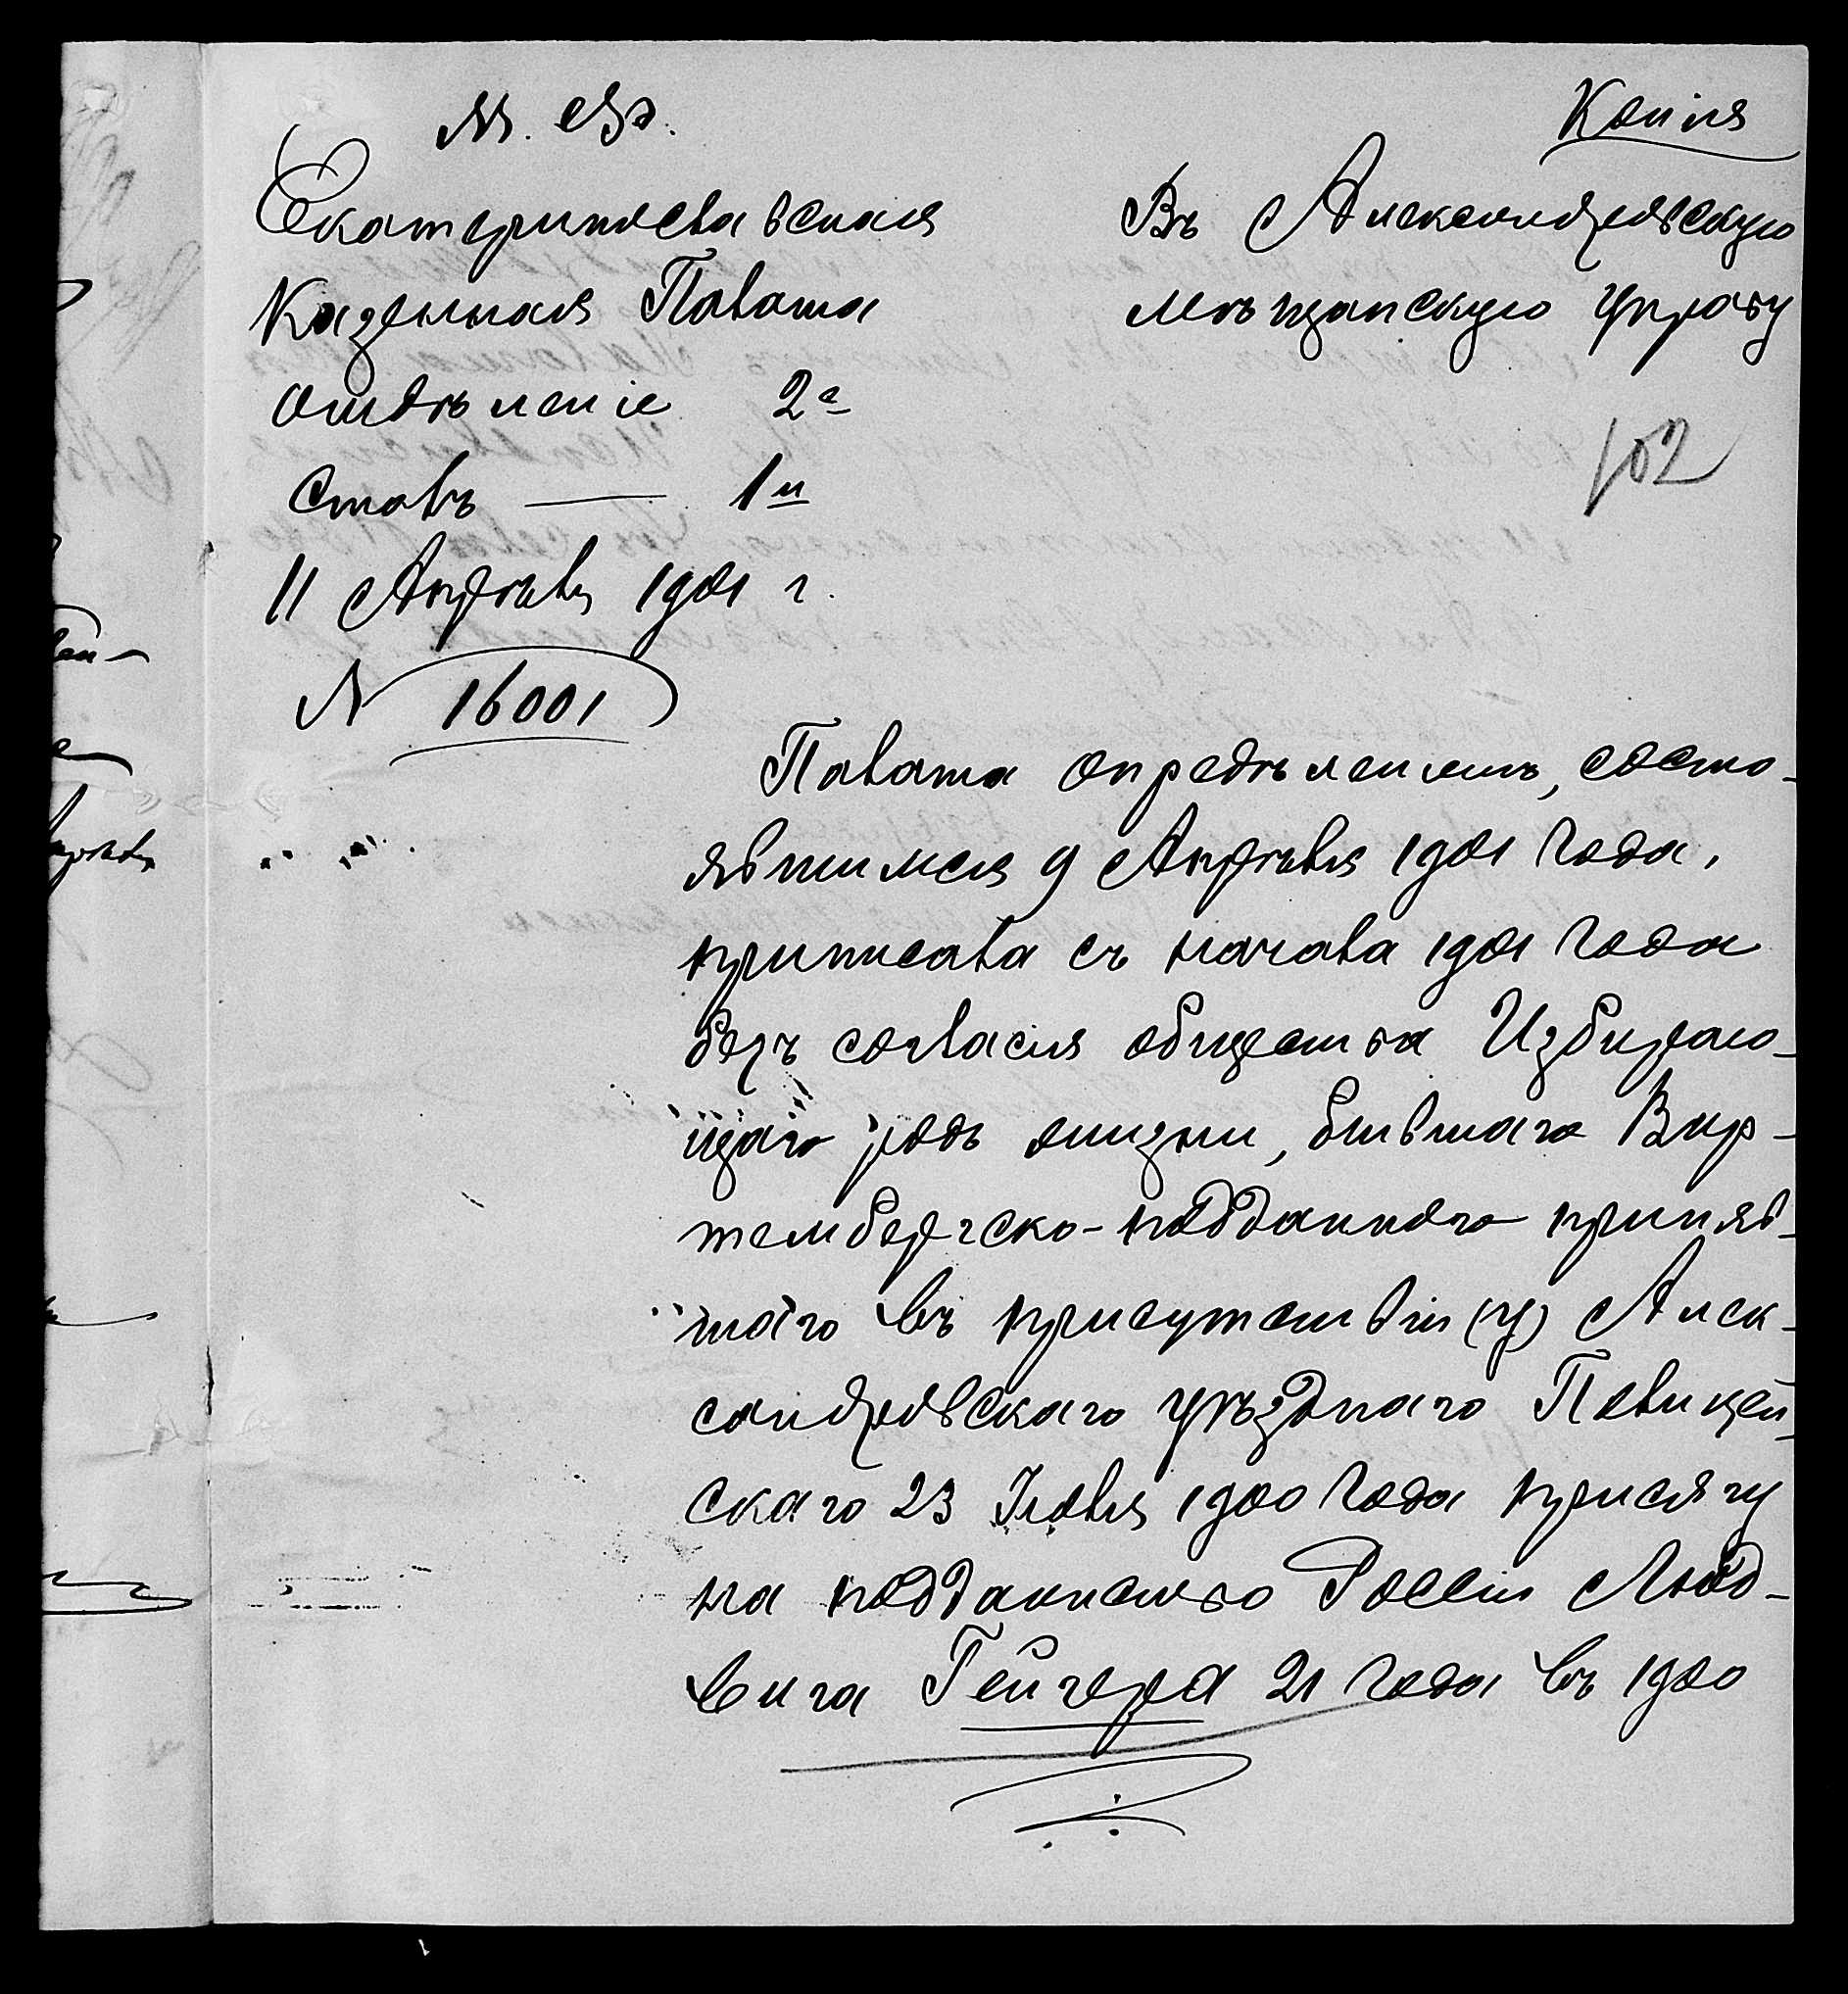 Копія
М. Ф.
Екатеринославская
Казенная Палата
отдѣленіе 2е
столъ — 1й
11 Апрѣля 1901 г.
N 16001
Въ Александровскую
мѣщанскую управу
102
Палата опредѣленіемъ, состо-
явшимся 9 Апрѣля 1901 года,
приписала съ начала 1901 года
безъ согласія общества Избираю-
щаго родъ жизни, бывшаго Вир-
тембергско-подданного приняв-
шаго въ присутствіи (у) Алек-
сандровскаго уѣзднаго Полицей-
скаго 23 Іюля 1900 года присягу
на подданнство Россіи Люд-
вига Гейгера 21 года въ 1900